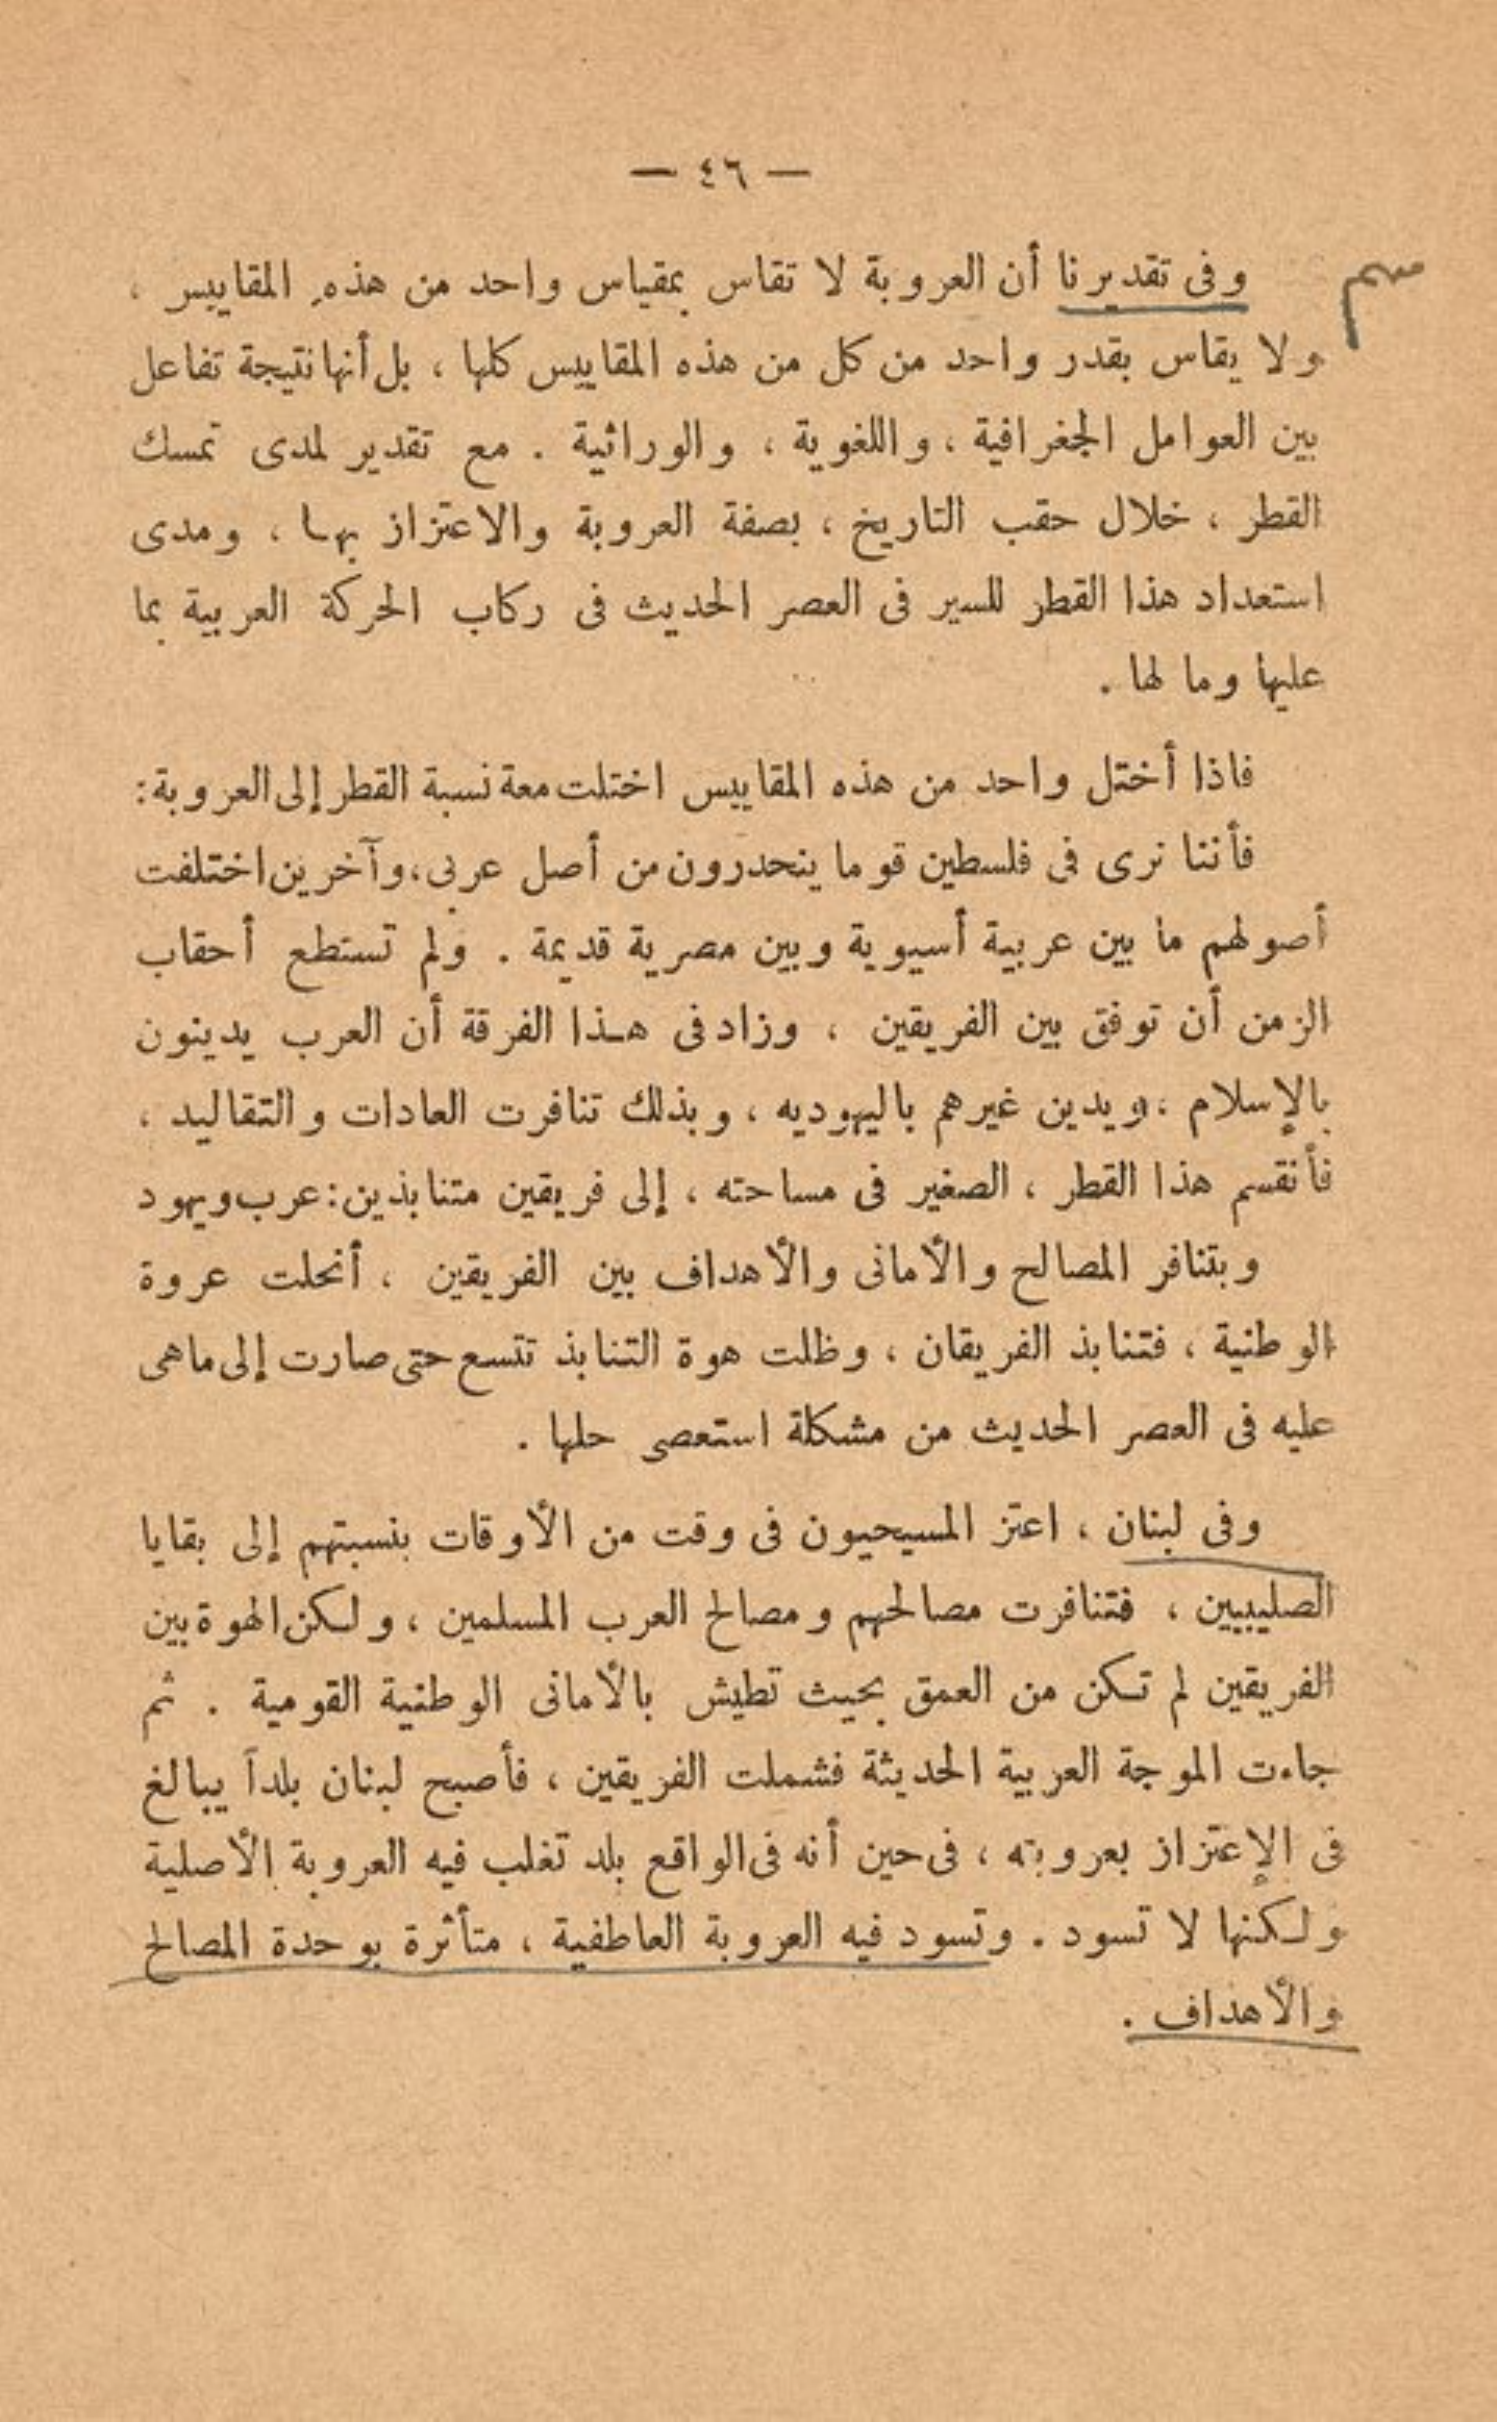 — ٤٦ —
وفى تقديرنا أن العروبة لا تقاس بمقياس واحد من هذه المقاييس ،
ولا يقاس بقدر واحد من كل من هذه المقاييس كلها ، بل أنها نتيجة تفاعل
بين العوامل الجغرافية ، واللغوية ، والوراثية . مع تقدير لمدى تمسك
القطر ، خلال حقب التاريخ ، بصفة العروبة والاعتزاز بها ، ومدى
استعداد هذا القطر للسير فى العصر الحديث فى ركاب الحركة العربية بما
عليها وما لها .
فاذا أختل واحد من هذه المقاييس اختلت معة نسبة القطر إلى العروبة :
فأننا نرى فى فلسطين قوما ينحدرون من أصل عربى ، وآخرين اختلفت
أصولهم ما بين عربية أسيوية وبين مصرية قديمة . ولم تستطع أحقاب
الزمن أن توفق بين الفريقين ، وزاد فى هـذا الفرقة أن العرب يدينون
بالإسلام ، ويدين غيرهم باليهوديه ، وبذلك تنافرت العادات والتقاليد ،
فأنقسم هذا القطر ، الصغير فى مساحته ، إلى فريقين متنابذين : عرب ويهود
وبتنافر المصالح والأمانى والأهداف بين الفريقين ، أنحلت عروة
الوطنية ، فتنابذ الفريقان ، وظلت هوة التنابذ تتسع حتى صارت إلى ماهى
عليه فى العصر الحديث من مشكلة استعصى حلها .
وفى لبنان ، اعتز المسيحيون فى وقت من الأوقات بنسبتهم إلى بقايا
الصليبيين ، فتنافرت مصالحهم ومصالح العرب المسلمين ، ولكن الهوة بين
الفريقين لم تكن من العمق بحيث تطيش بالأمانى الوطنية القومية . ثم
جاءت الموجة العربية الحديثة فشملت الفريقين ، فأصبح لبنان بلداً يبالغ
فى الإعتزاز بعروبته ، فى حين أنه فى الواقع بلد تغلب فيه العروبة الأصلية
ولكنها لا تسود . وتسود فيه العروبة العاطفية ، متأثرة بوحدة المصالح
والأهداف .